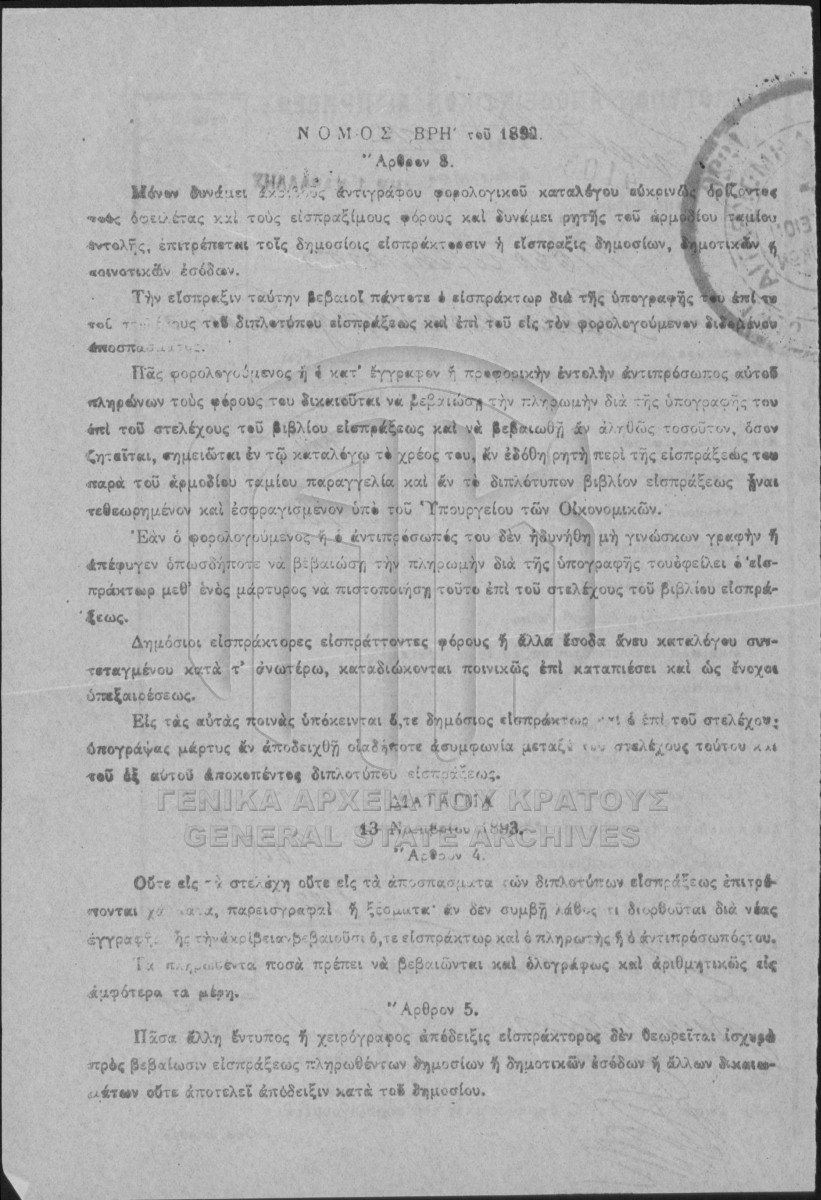 ΝΟΜΟΣ ΒΡΗ' τοῦ 1892.
Ἄρθρον 3.
Μόνον δυνάμει ἀντιγράφου φορολογικοῦ καταλόγου εὐκρινῶς ὁρίζοντος
τοὺς ὀφειλέτας καὶ τοὺς εἰσπραξίμους φόρους καὶ δυνάμει ρητῆς τοῦ ἁρμοδίου ταμίου
ἐντολῆς, ἐπιτρέπεται τοῖς δημοσίοις εἰσπράκτορσιν ἡ εἴσπραξις δημοσίων, δημοτικῶν ἤ
κοινοτικῶν ἐσόδων.
Τὴν εἴσπραξιν ταύτην βεβαιοῖ πάντοτε ὁ εἰσπράκτωρ διὰ τῆς ὑπογραφῆς του ἐπί τε
τοῦ τοῦ διπλοτύπου εἰσπράξεως καὶ ἐπὶ τοῦ εἰς τὸν φορολογούμενον διδομένου
ἀποσπάσματος.
Πᾶς φορολογούμενος ἤ ὁ κατ' ἔγγραφον ἤ προφορικὴν ἐντολὴν ἀντιπρόσωπος αὐτοῦ
πληρώνων τοὺς φόρους του δικαιοῦται νὰ βεβαιώσῃ τὴν πληρωμὴν διὰ τῆς ὑπογραφῆς του
ἐπὶ τοῦ στελέχους τοῦ βιβλίου εἰσπράξεως καὶ νὰ βεβαιωθῇ ἄν ἀληθῶς τοσοῦτον, ὅσον
ζητεῖται, σημειῶται ἐν τῷ καταλόγῳ τὸ χρέος του, ἄν ἐδόθη ρητὴ περὶ τῆς εἰσπράξεώς του
παρὰ τοῦ ἁρμοδίου ταμίου παραγγελία καὶ ἄν τὸ διπλότυπον βιβλίον εἰσπράξεως ᾖναι
τεθεωρημένον καὶ ἐσφραγισμένον ὑπὸ τοῦ Ὑπουργείου τῶν Οἰκονομικῶν.
Ἐὰν ὁ φορολογούμενος ἤ ὁ ἀντιπρόσωπός του δὲν ἠδυνήθη μὴ γινώσκων γραφὴν ἤ
ἀπέφυγεν ὁπωσδήποτε νὰ βεβαιώσῃ τὴν πληρωμὴν διὰ τῆς ὑπογραφῆς του ὀφείλει ὁ εἰσ-
πράκτωρ μεθ' ἑνὸς μάρτυρος νὰ πιστοποιήσῃ τοῦτο ἐπὶ τοῦ στελέχους τοῦ βιβλίου εἰσπρά-
ξεως.
Δημόσιοι εἰσπράκτορες εἰσπράττοντες φόρους ἤ ἄλλα ἔσοδα ἄνευ καταλόγου συν-
τεταγμένου κατὰ τ' ἀνωτέρω, καταδιώκονται ποινικῶς ἐπὶ καταπιέσει καὶ ὡς ἔνοχοι
ὑπεξαιρέσεως.
Εἰς τὰς αὐτὰς ποινὰς ὑπόκεινται ὅ,τε δημόσιος εἰσπράκτωρ καὶ ὁ ἐπὶ τοῦ στελέχους
ὑπογράψας μάρτυς ἄν ἀποδειχθῇ οἱαδήποτε ἀσυμφωνία μεταξὺ τοῦ στελέχους τούτου καὶ
τοῦ ἐξ αὐτοῦ ἀποκοπέντος διπλοτύπου εἰσπράξεως.
ΔΙΑΤΑΓΜΑ
13 Νοεμβρίου 1893.
Ἄρθρον 4.
Οὔτε εἰς τὰ στελέχη οὔτε εἰς τὰ ἀποσπάσματα τῶν διπλοτύπων εἰσπράξεως ἐπιτρέ-
πονται παρεισγραφαὶ ἤ ξέσματα· ἄν δὲν συμβῇ λάθος τι διορθοῦται διὰ νέας
ἐγγραφῆς ἧς τὴν ἀκρίβειαν βεβαιοῦσι ὅ,τε εἰσπράκτωρ καὶ ὁ πληρωτὴς ἤ ὁ ἀντιπρόσωπός του.
Τὰ πληρωθέντα ποσὰ πρέπει νὰ βεβαιῶνται καὶ ὁλογράφως καὶ ἀριθμητικῶς εἰς
ἀμφότερα τὰ μέρη.
Ἄρθρον 5.
Πᾶσα ἄλλη ἔντυπος ἤ χειρόγραφος ἀπόδειξις εἰσπράκτορος δὲν θεωρεῖται ἰσχυρὰ
πρὸς βεβαίωσιν εἰσπράξεως πληρωθέντων δημοσίων ἤ δημοτικῶν ἐσόδων ἤ ἄλλων δικαιω-
μάτων οὔτε ἀποτελεῖ ἀπόδειξιν κατὰ τοῦ δημοσίου.
ΓΕΝΙΚΑ ΑΡΧΕΙΑ ΤΟΥ ΚΡΑΤΟΥΣ
GENERAL STATE ARCHIVES